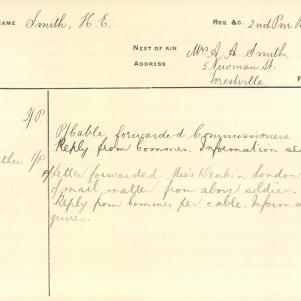 NAME Smith, H. E. REG. &C. 2nd Pnr B
NEXT OF KIN Mrs A. A. Smith,
ADDRESS 5 Newman St.
Forestville.
P/Cable forwarded Commissioners
Reply from Commrs. Information se
P/Letter forwarded Miss Deakin London
of mail matter from above soldier.
Reply from Commrs per cable. Informa
given.